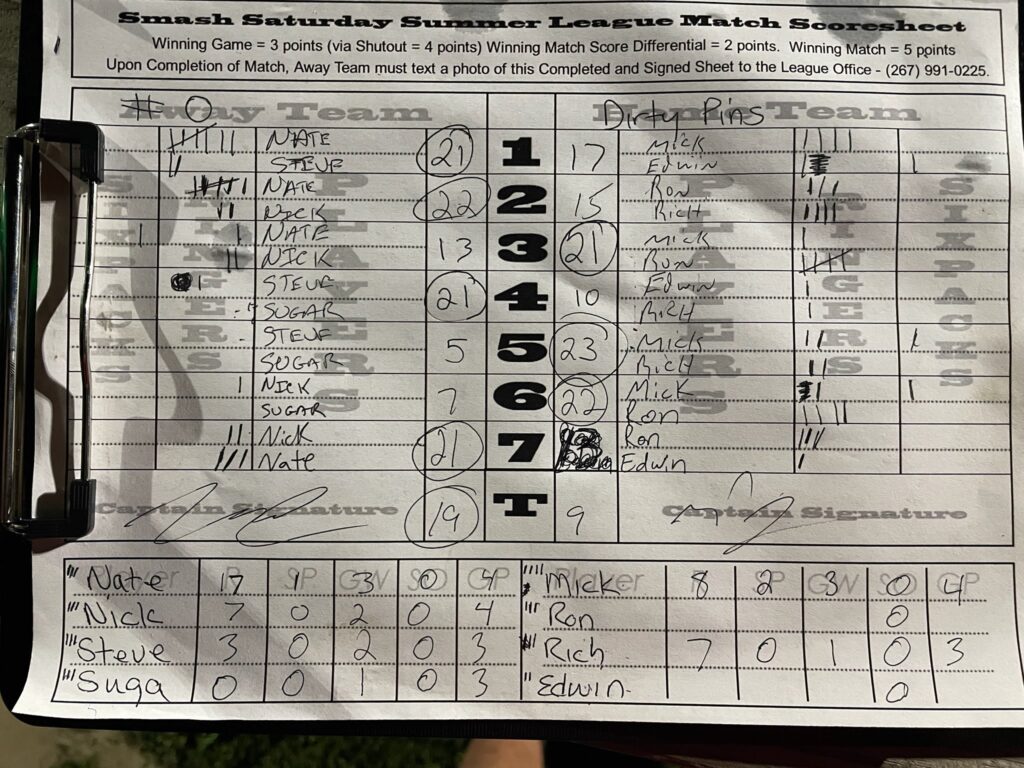 Smash Saturday Summer League Match Scoresheet
Winning Game = 3 points (via Shutout = 4 points) Winning Match Score Differential = 2 points. Winning Match = 5 points
Upon Completion of Match, Away Team must text a photo of this Completed and Signed Sheet to the League Office - (267) 991-0225.
# O Away Team Dirty Pins Home Team
NATE 21 1 17 Mick
STEVE Edwin
NATE 22 2 15 Ron
NICK Rich
NATE 13 3 21 Mick
NICK Ron
STEVE 21 4 10 Edwin
SUGAR Rich
STEVE 5 5 23 Mick
SUGAR Rich
NICK 7 6 22 Mick
SUGAR Ron
Nick 21 7 Ron
Nate Edwin
Captain Signature 19 T 9 Captain Signature
SIXPACKS FINGERS PLAYERS PLAYERS FINGERS SIXPACKS
Player P SP GW SO GP Player P SP GW SO GP
Nate 17 1 3 0 4 Mick 8 2 3 0 4
Nick 7 0 2 0 4 Ron 0
Steve 3 0 2 0 3 Rich 7 0 1 0 3
Suga 0 0 1 0 3 Edwin 0